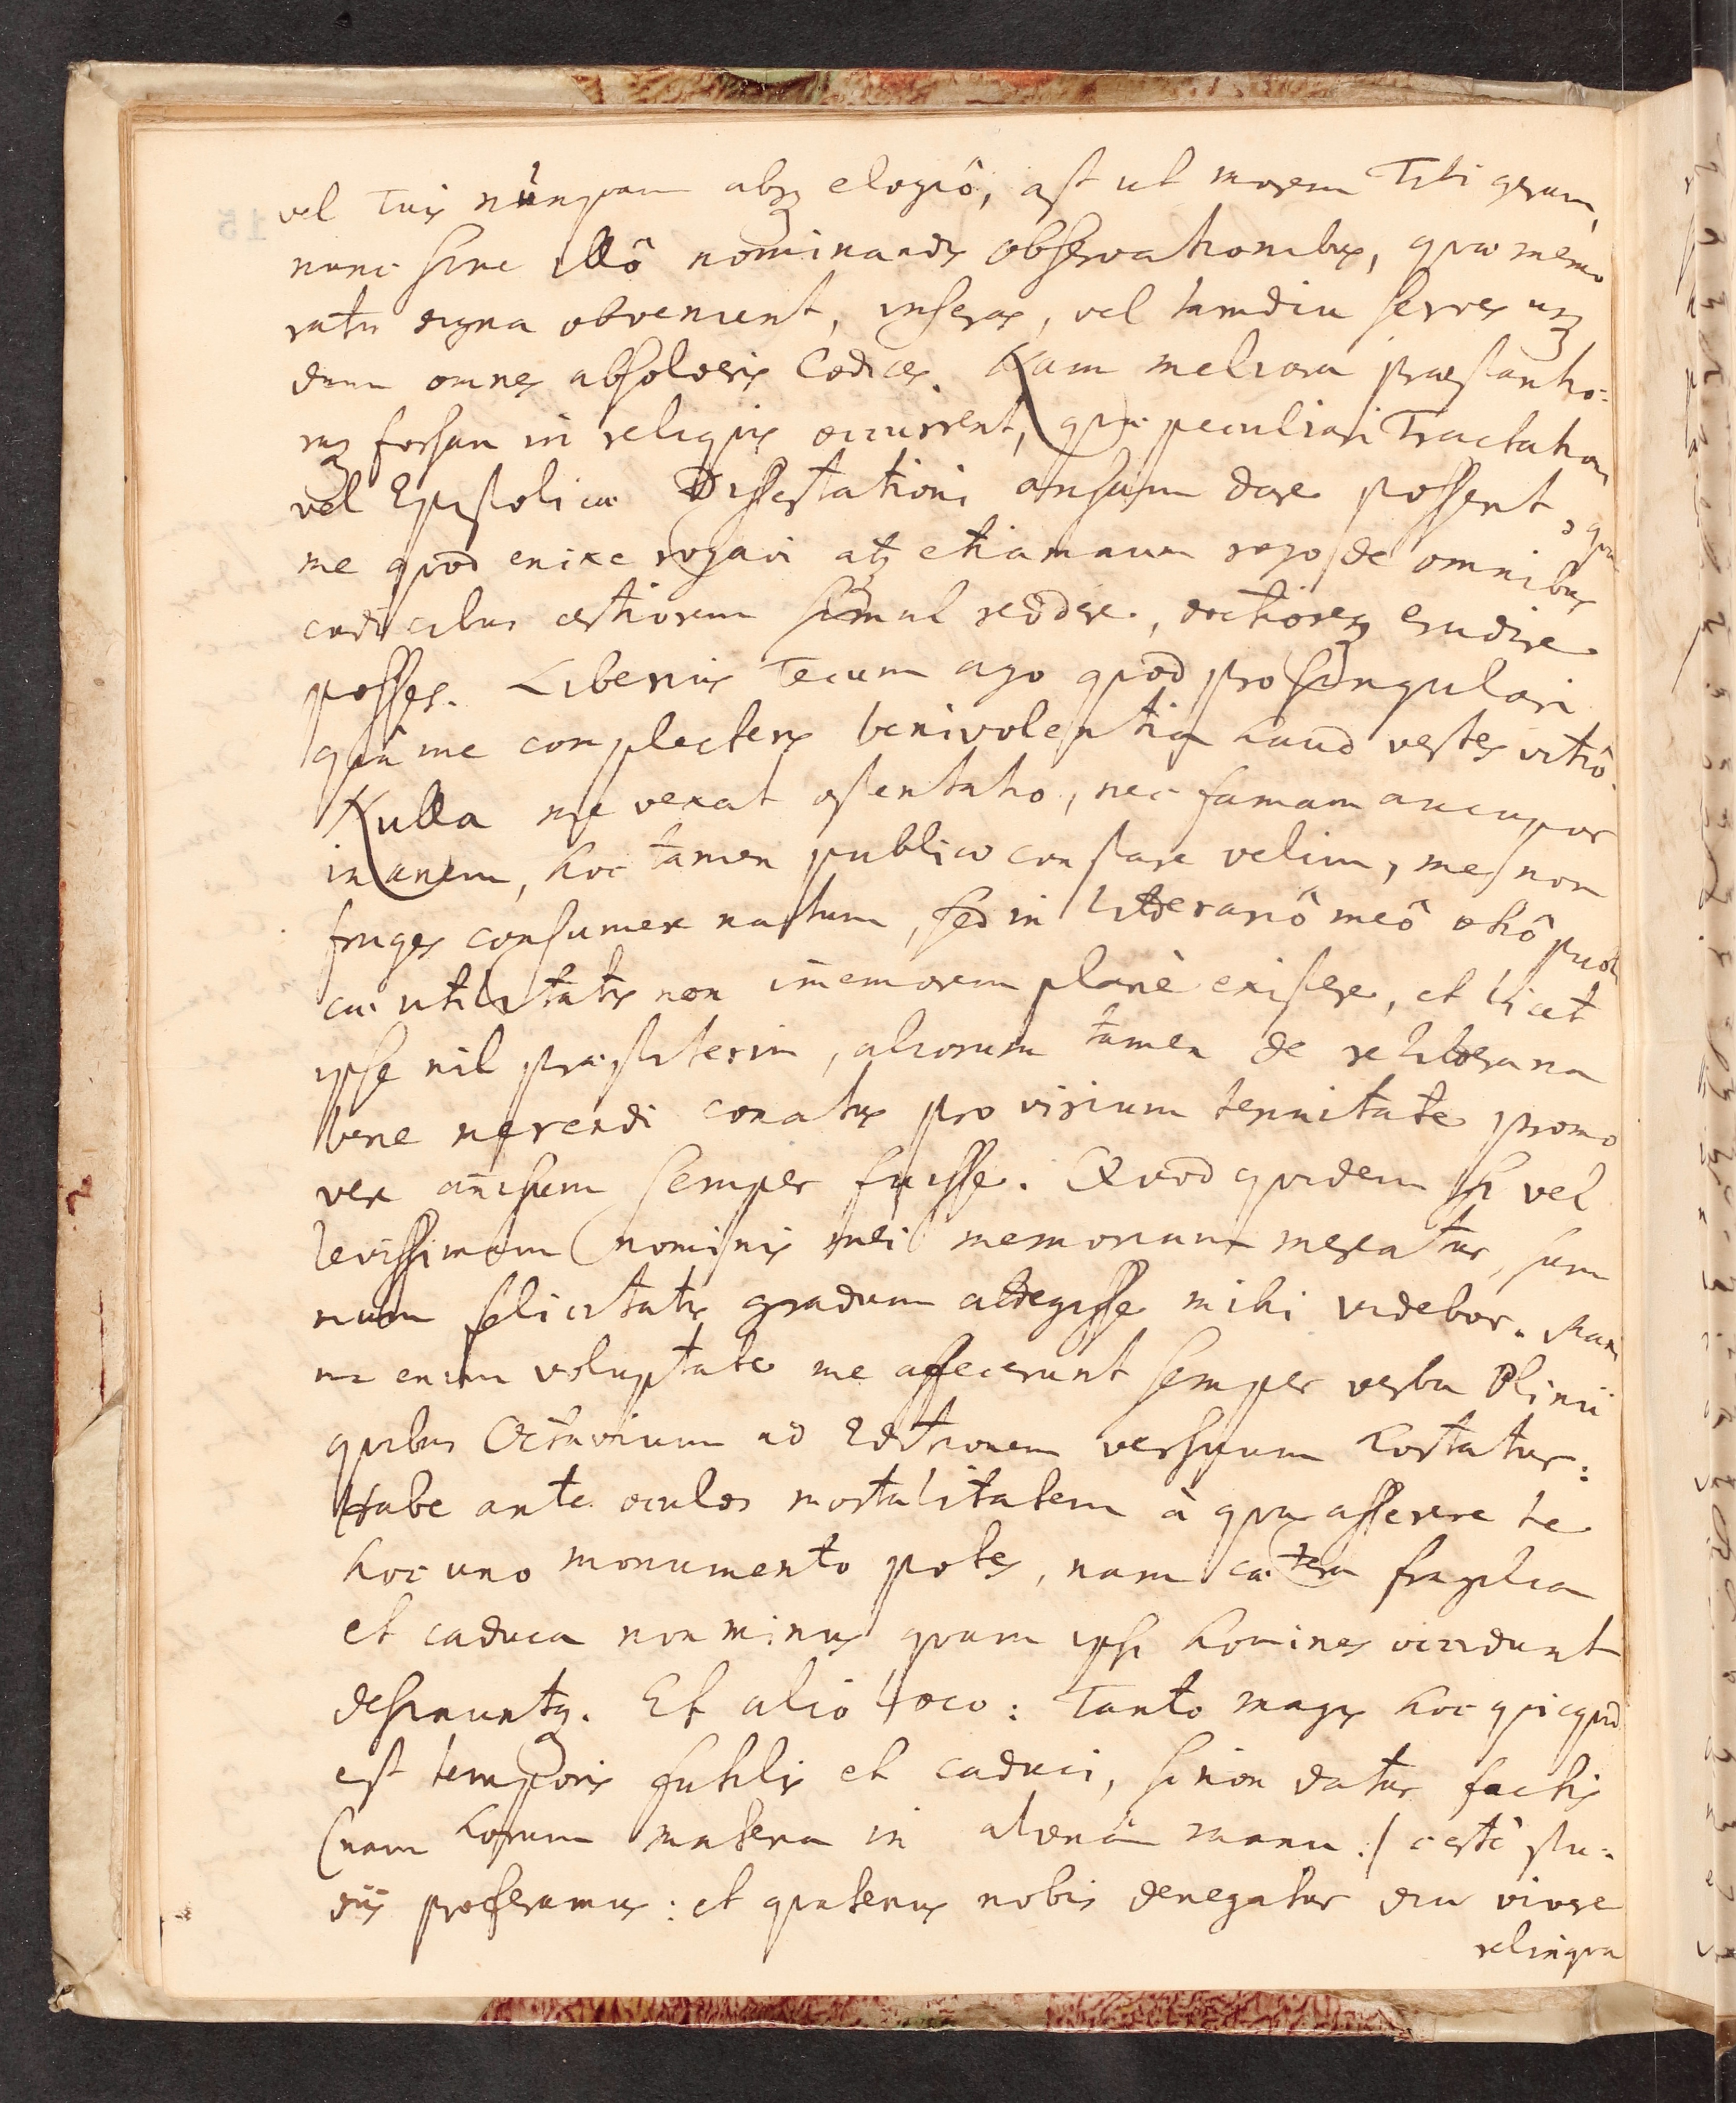 vel Tuis nûnquam absq elogiô, ast ut morem Tibi geram,
nunc sine illô nominandis observationibus, quæ memo
ratu digna obvenient, inseras, vel tamdiu serves usq
dum omnes absolveris Codices. Nam meliora præstantio-
raq forsan in reliquis occurrent, quæ peculiari Tractationi
vel Epistolicæ Dissertationi ansam dare possent,
me quod enixe rogavi atq etiamnum rogo de omnibus
codicibus certiorem simul reddere, doctioremq erudire
posses. Liberius Tecum ago quod pro singulari
quâ me complecteris benivolentia haud vertes vitiô.
Nulla me vexat ostentatio, nec famam aucupor
inanem, hoc tamen publico constare velim, me non
fruges consumere natum, sed in litterariô meô otiô publi
cæ utilitatis non im̄emorem planè existere, et licet
ipse nil præstiterim, aliorum tamen de re literaria
bene merendi conatus pro virium tenuitate promo
vere an̄isum semper fuisse. Quod quidem si vel
levissimam nominis mei memoriam mereatur, sum
mum felicitatis gradum attegisse mihi videbor. Maxi
ma enim voluptate me affecerunt semper verba Plinii
quibus Octavium ad Editionem versuum hortatur:
Habe ante oculos mortalitatem à qua asserere te
hoc uno monumento potes, nam cætera fragilia
et caduca non minus quam ipsi homines occidunt
desinuntq. Et alio loco: Tanto magis hoc quicquid
est temporis futilis et caduci, si non datur factis
(nam horum materia in alienâ manu:/ certè stu-
diis proferamus: et quatenus nobis denegatur diu vivere
relinqua